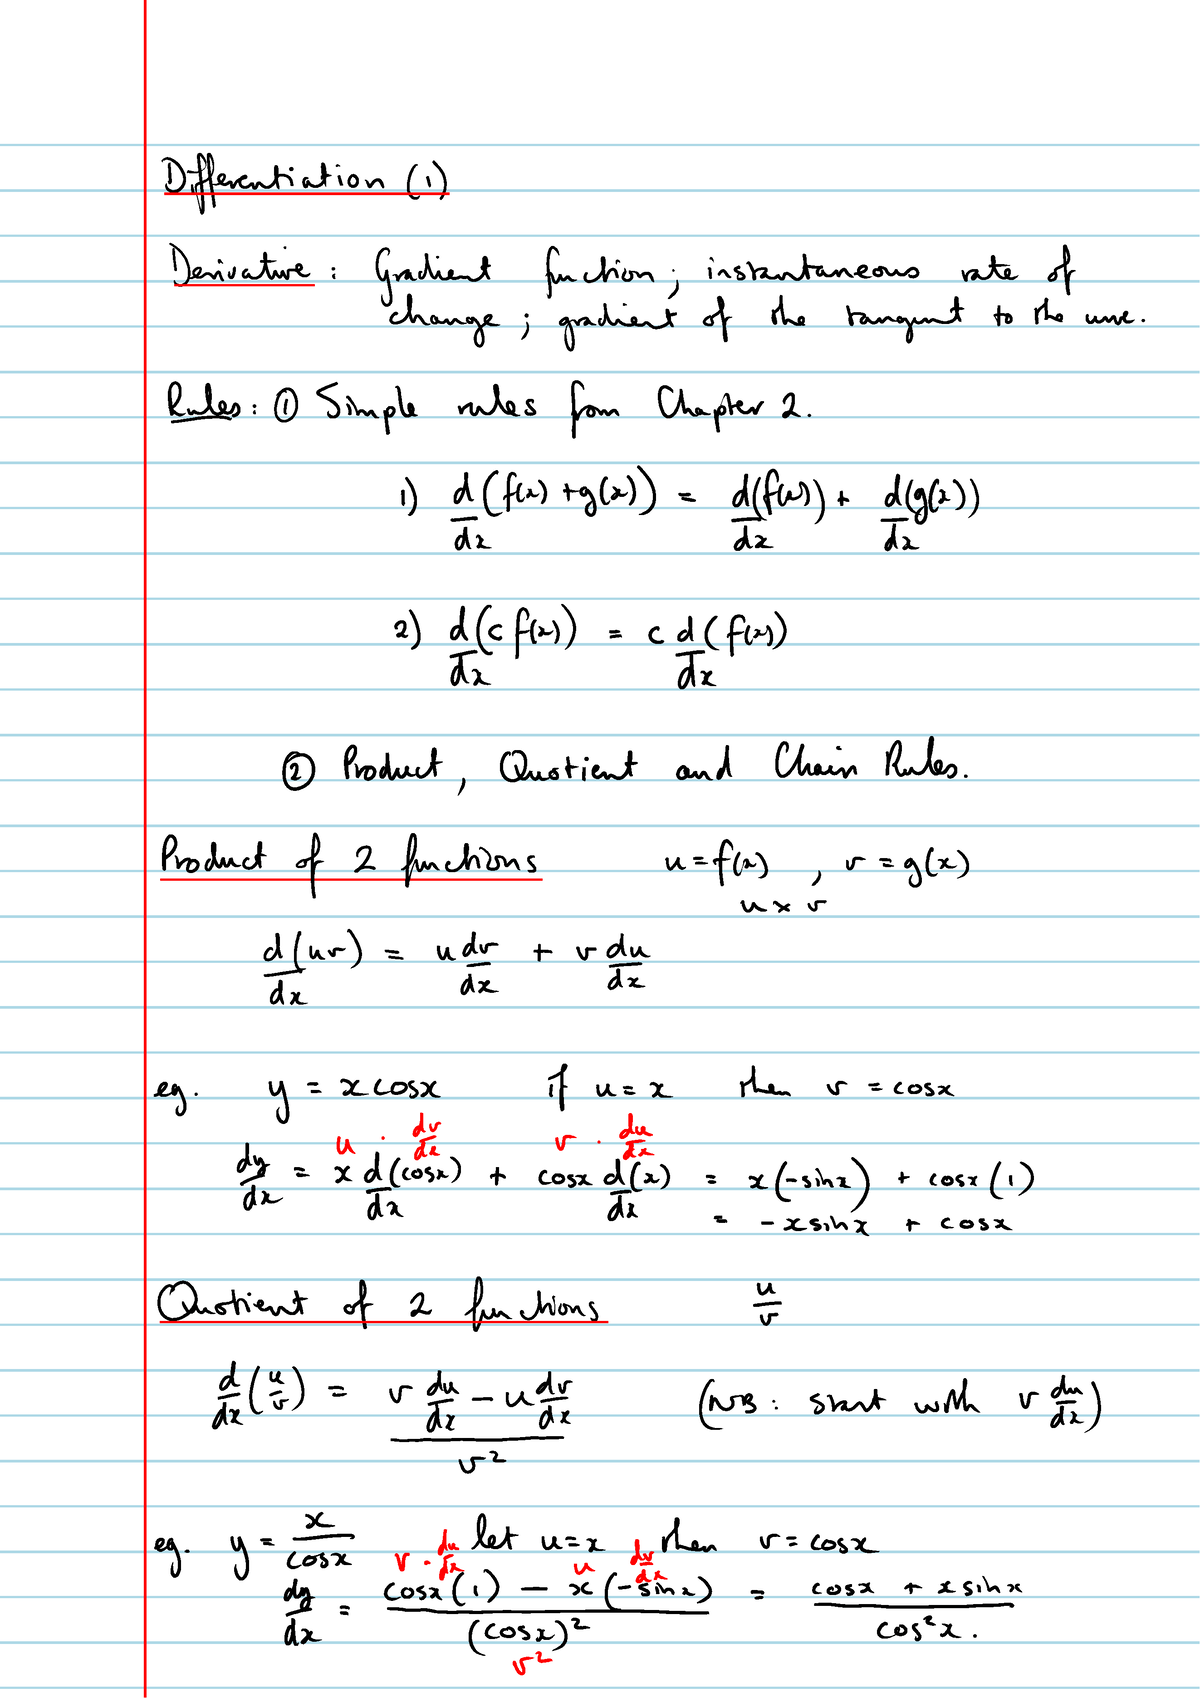 Differentiation (1)
Derivative : Gradient function ; instantaneous rate of
change ; gradient of the tangent to the curve.
Rules : ① Simple rules from Chapter 2.
1) d/dx (f(x) + g(x)) = d/dx (f(x)) + d/dx (g(x))
2) d/dx (c f(x)) = c d/dx (f(x))
② Product, Quotient and Chain Rules.
Product of 2 functions u = f(x) , v = g(x)
u × v
d/dx (uv) = u dv/dx + v du/dx
eg. y = x cosx if u = x then v = cosx
u . dv/dx v . du/dx
dy/dx = x d/dx (cosx) + cosx d/dx (x) = x(-sinx) + cosx (1)
= - x sinx + cosx
Quotient of 2 functions u/v
d/dx (u/v) = (v du/dx - u dv/dx) / v² (NB : start with v du/dx)
eg. y = x/cosx let u = x then v = cosx
v . du/dx u dv/dx
dy/dx = (cosx (1) - x (-sinx)) / (cosx)² = (cosx + x sinx) / cos²x .
v²